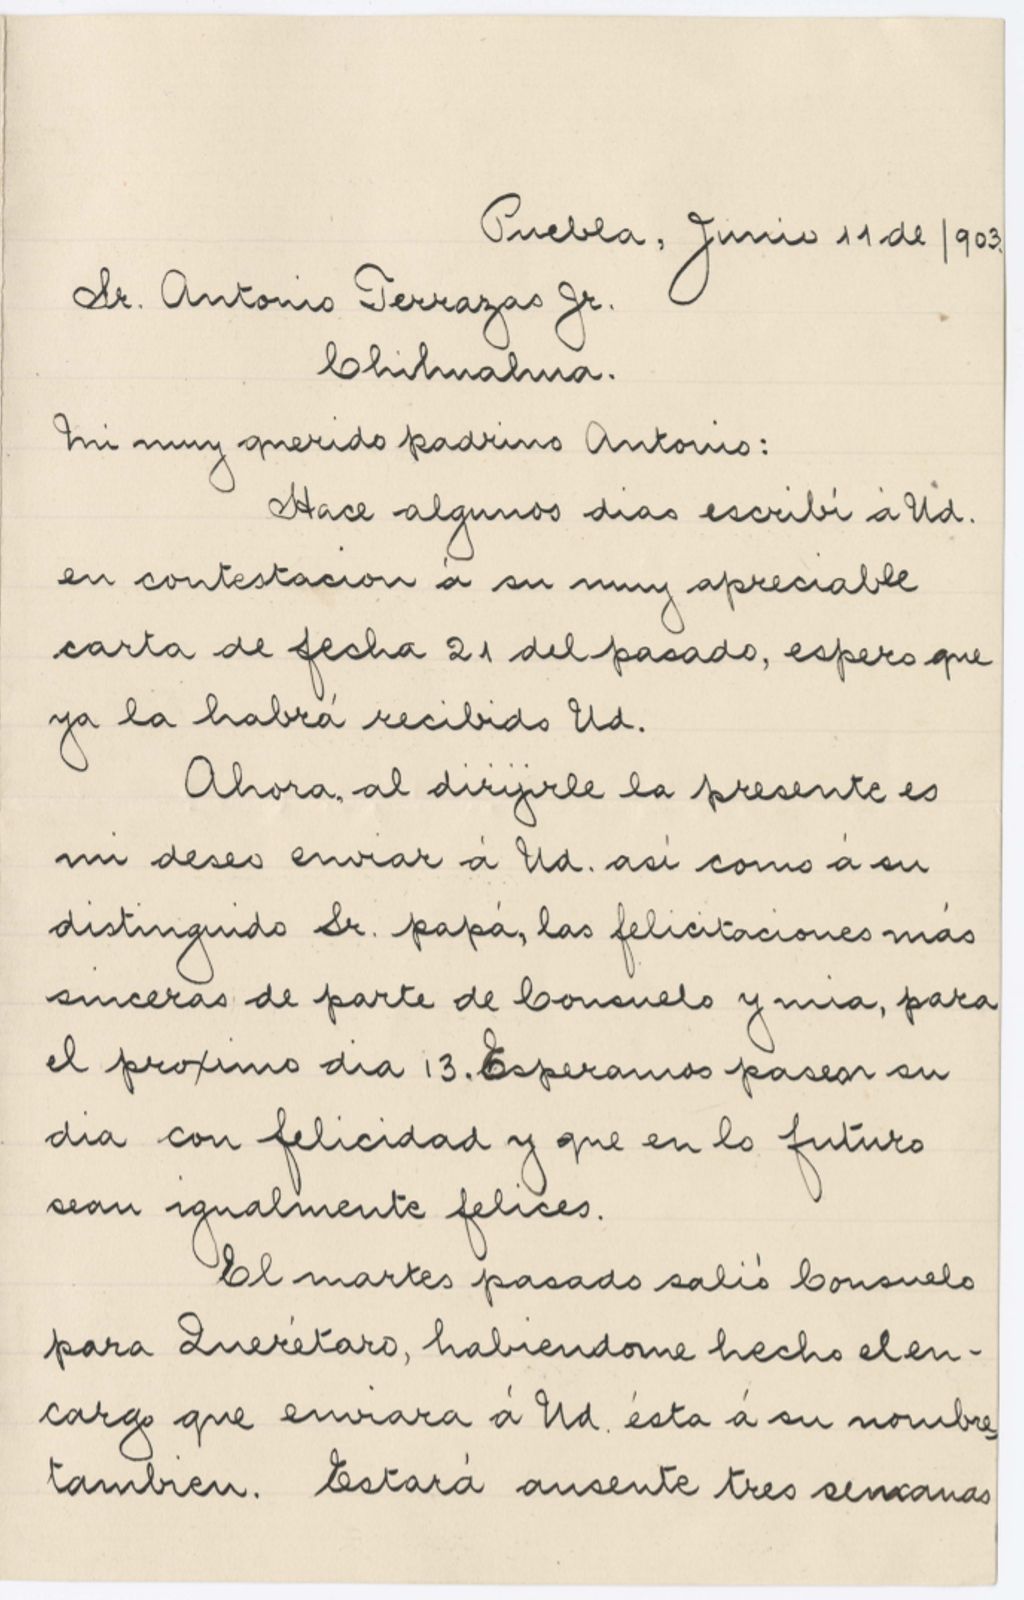 Puebla, Junio 11 de /903.
Sr. Antonio Terrazas Jr.
Chihuahua.
Mi muy querido padrino Antonio:
Hace algunos dias escribí á Ud.
en contestacion á su muy apreciable
carta de fecha 21 del pasado, espero que
ya la habrá recibido Ud.
Ahora, al dirijirle la presente es
mi deseo enviar á Ud. así como á su
distinguido Sr. papá, las felicitaciones más
sinceras de parte de Consuelo y mia, para
el proximo dia 13. Esperamos pasen su
dia con felicidad y que en lo futuro
sean igualmente felices.
El martes pasado salió Consuelo
para Querétaro, habiendome hecho el en-
cargo que enviara á Ud. ésta á su nombre
tambien. Estará ausente tres semanas